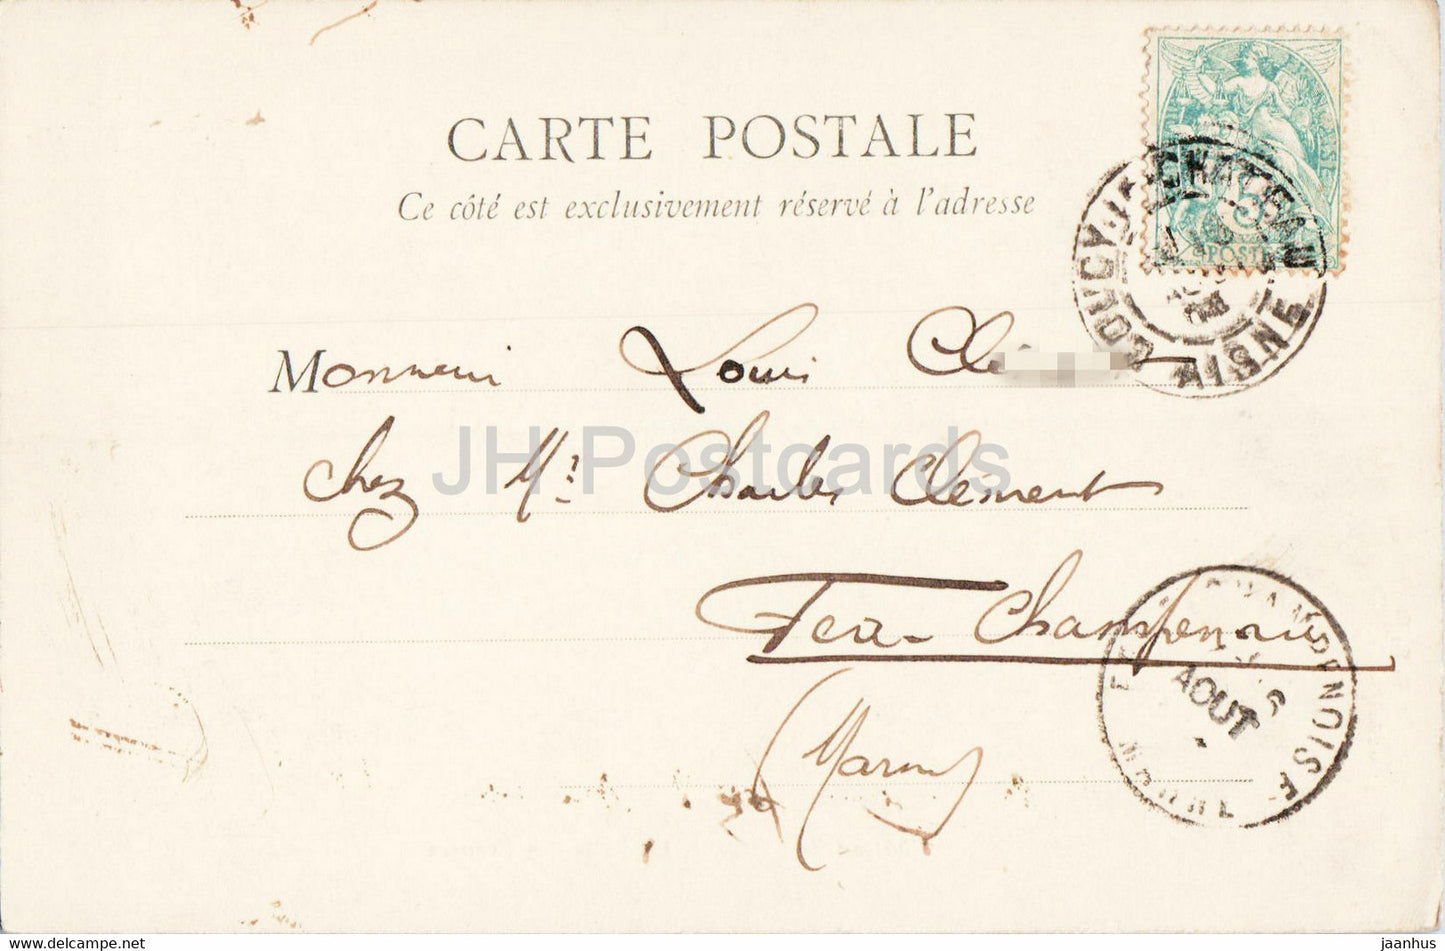 CARTE POSTALE
Ce côté est exclusivement réservé à l'adresse
COUCY-LE-CHATEAU
AISNE
5
POSTE
Monsieur Louis Clé
chez Mr: Charles Clément
Fère-Champenoise
(Marne)
FÈRE-CHAMPENOISE
AOUT
MARNE
JH Postcards
www.delcampe.net
jaanhus